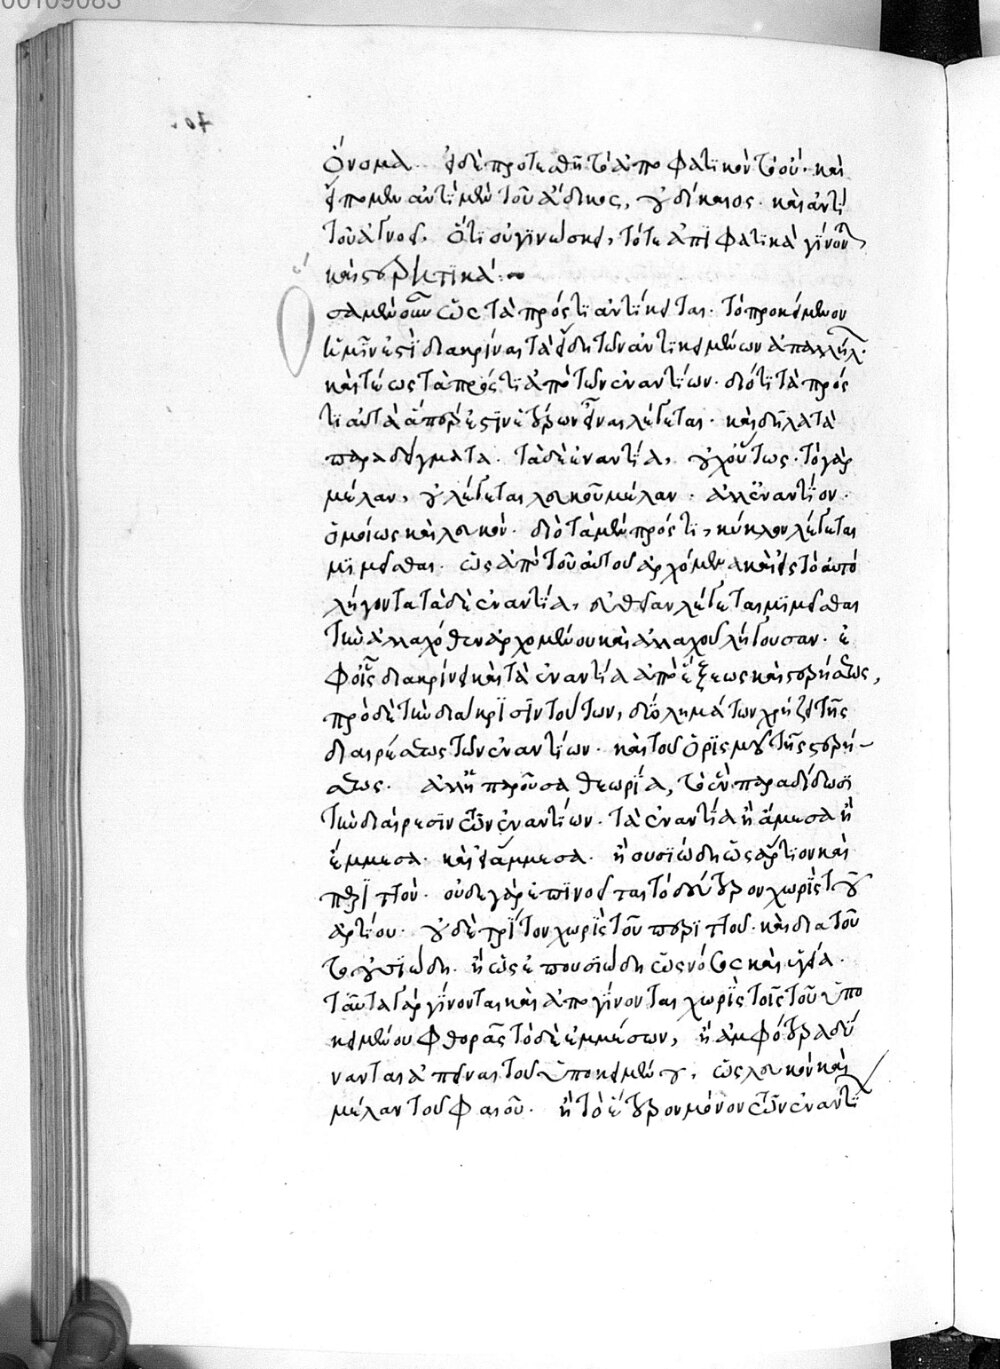 00109083
ὄνομα. εἰ δὲ προτεθῆ τὸ ἀποφατικὸν τὸ οὐ. καὶ
εἴπομεν ἀντὶ μὲν τοῦ ἄδικος, οὐ δίκαιος. καὶ ἀντὶ
τοῦ ἀγνοεῖ. ὅτι οὐ γινώσκει, τότε ἀποφατικὰ γίνονται
καὶ στερητικά:~
σα μὲν οὖν ὡς τὰ πρός τι ἀντίκειται. τὸ προκείμενον
ἡμῖν ἐστὶ διακρίναι τὰ εἴδη τῶν ἀντικειμένων ἀπ' ἀλλήλων.
καὶ τέως τὰ πρός τι ἀπὸ τῶν ἐναντίων. διότι τὰ πρός
τι αὐτὰ ἅπερ ἐστὶν ἑτέρων εἶναι λέγεται. καὶ δῆλα τὰ
παραδείγματα. τὰ δὲ ἐναντία, οὐχ οὕτως. τὸ γὰρ
μέλαν, οὐ λέγεται λευκοῦ μέλαν. ἀλλ' ἐναντίον.
ὁμοίως καὶ λευκόν. διὸ τὰ μὲν πρός τι, κύκλον λέγεται
μιμεῖσθαι. ὡς ἀπὸ τοῦ αὐτοῦ ἀρχόμενα καὶ εἰς τὸ αὐτὸ
λήγοντα τὰ δὲ ἐναντία, εὐθεῖαν λέγεται μιμεῖσθαι
τὴν ἀλλαχόθεν ἀρχομένην καὶ ἀλλαχοῦ λήγουσαν. ἐ
φ' οἷς διακρίνει καὶ τὰ ἐναντία ἀπὸ ἕξεως καὶ στερήσεως,
πρὸ δὲ τὴν διάκρισιν τούτων, διὸ λημμάτων χρήζει τῆς
διαιρέσεως τῶν ἐναντίων. καὶ τοῦ ὁρισμοῦ τῆς στερή-
σεως. ἀλλ' ἡ παροῦσα θεωρία, τὸ ἓν παραδίδωσι
τὴν διαίρεσιν τῶν ἐναντίων. τὰ ἐναντία ἢ ἄμεσα ἢ
ἔμμεσα. καὶ εἰ ἄμμεσα. ἢ οὐσιώδη ὡς ἄρτιον καὶ
περιττόν. οὐδὲ γὰρ ἐπινοεῖται τὸ δεύτερον χωρὶς τοῦ
ἀρτίου. οὐδὲ τρίτον χωρὶς τοῦ περιττοῦ. καὶ διὰ τοῦ
το οὐσιώδη. ἢ ὡς ἐπουσιώδη ὡς νόσος καὶ ὑγεία.
ταῦτα γὰρ γίνονται καὶ ἀπογίνονται χωρὶς τῆς τοῦ ὑπο
κειμένου φθορᾶς τὸ δὲ ἐμμέσων, ἢ ἀμφότερα δύ
νανται ἀπεῖναι τοῦ ὑποκειμένου, ὡς λευκὸν καὶ
μέλαν τοῦ φαιοῦ. ἢ τὸ ἕτερον μόνον τῶν ἐναντί